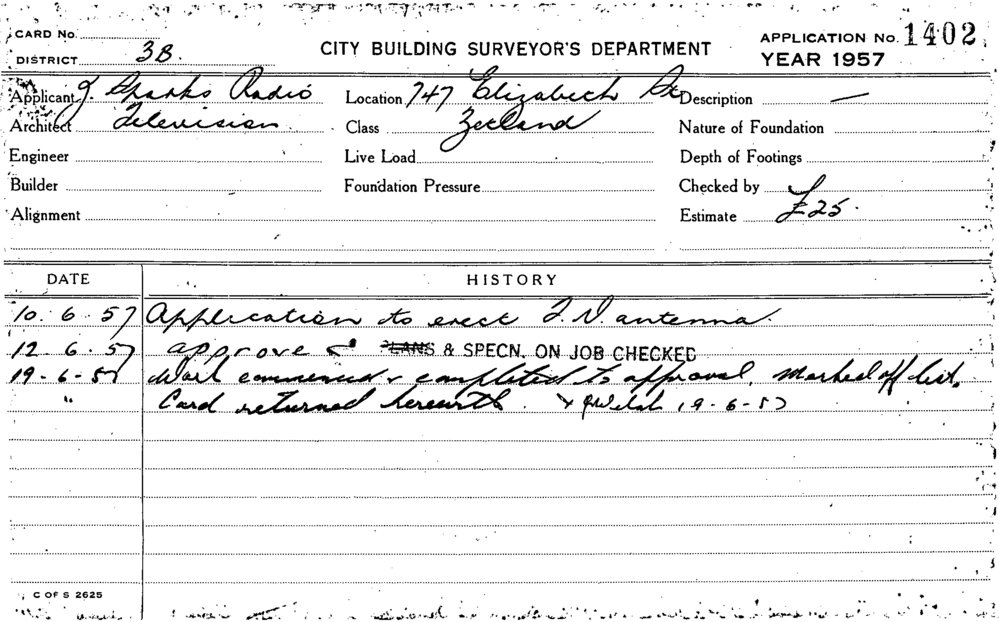 CARD No.
DISTRICT 3B.
CITY BUILDING SURVEYOR'S DEPARTMENT
APPLICATION No. 1402
YEAR 1957
Applicant J. Sparks Radio
Location 747 Elizabeth St
Description —
Architect Television
Class Zetland
Nature of Foundation
Engineer
Live Load
Depth of Footings
Builder
Foundation Pressure
Checked by
Alignment
Estimate £25.
DATE
HISTORY
10.6.57 Application to erect T.V. antenna.
12.6.57 approve PLANS & SPECN. ON JOB CHECKED
19-6-57 Work commenced & completed to approval. Marked off list.
" Card returned herewith. Welsh 19-6-57
C OF S 2625